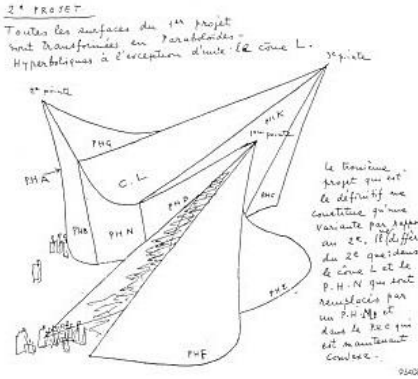 2e PROJET
Toutes les surfaces du 1er projet
sont transformées en Paraboloïdes-
Hyperboliques à l'exception d'une: le cône L.
3e pointe
2e pointe
1ère pointe
PHG
PHK
PHA
C.L
PHD
PHC
PHB
PHN
PHE
PHF
Le troisième
projet qui est
le définitif ne
constitue qu'une
variante par rapport
au 2e. Il diffère
du 2e que: dans
le cône L et le
P.H.N qui sont
remplacés par
un P.H. et
dans le qui
est maintenant
convexe.